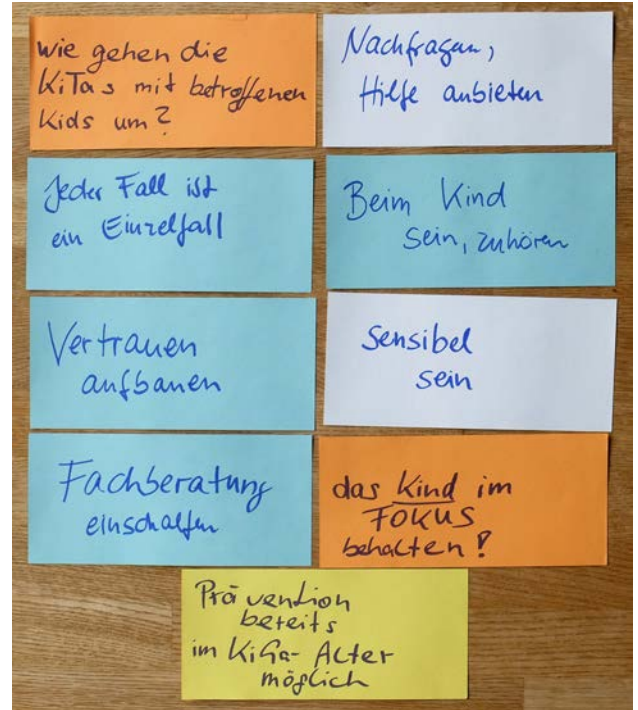 Wie gehen die
KiTas mit betroffenen
Kids um?
Nachfragen,
Hilfe anbieten
Jeder Fall ist
ein Einzelfall
Beim Kind
sein, zuhören
Vertrauen
aufbauen
Sensibel
sein
Fachberatung
einschalten
das Kind im
FOKUS
behalten!
Prävention
bereits
im KiGa-Alter
möglich